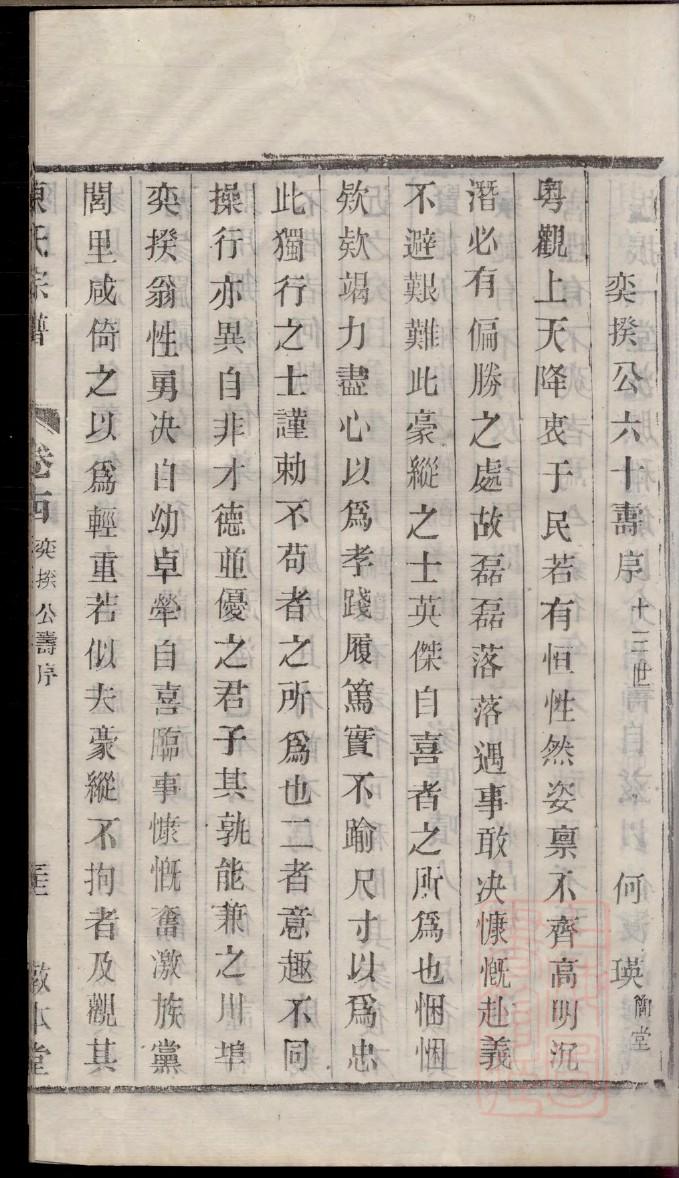 奕揆公六十壽序 十三世 何瑛 簡堂
粤觀上天降衷于民若有恒性然姿禀不齊高明沉
潛必有偏勝之處故磊磊落落遇事敢决慷慨赴義
不避艱難此豪縱之士英傑自喜者之所爲也悃悃
欵欵竭力盡心以爲孝踐履篤實不踰尺寸以爲忠
此獨行之士謹勅不苟者之所爲也二者意趣不同
操行亦異自非才德並優之君子其孰能兼之川埠
奕揆翁性勇决自幼卓犖自喜臨事慷慨奮激族黨
閭里咸倚之以爲輕重若似夫豪縱不拘者及觀其
陳氏宗譜 卷 奕揆公壽序 敦本堂